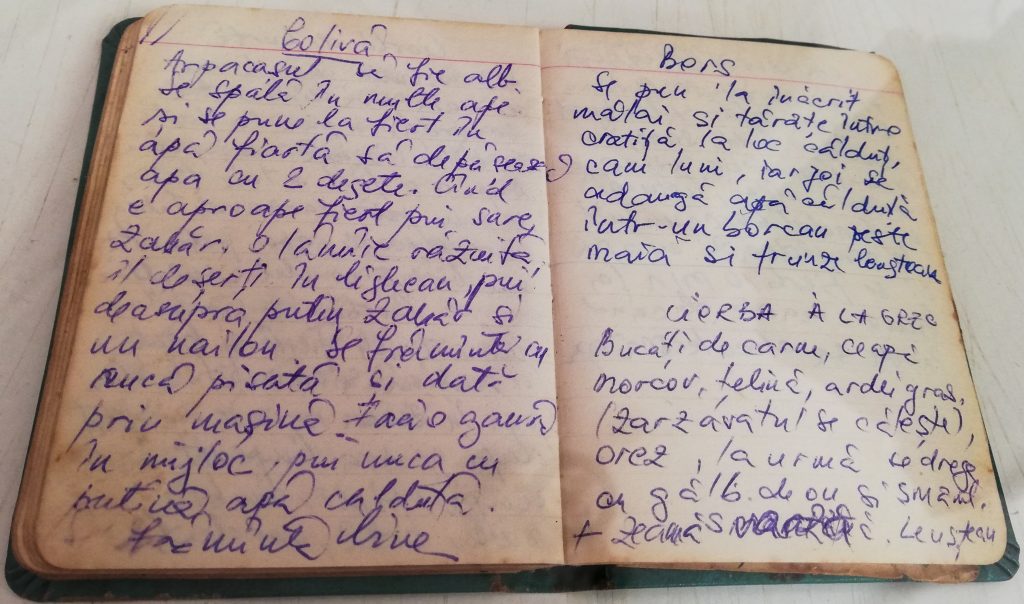 Colivă
Arpacașul să fie alb.
Se spală în multe ape
și se pune la fiert în
apă fiartă să depășească
apa cu 2 degete. Când
e aproape fiert pui sare,
zahăr. O lămîie răzuită,
îl deșerți în lighean, pui
deasupra puțin zahăr și
un nailon. se frămîntă cu
nucă pisată și dată
prin mașină. Faci o gaură
în mijloc, pui nuca cu
puțină apă călduță.
Frămîntă bine
Borș
Se pun la înăcrit
mălai și tărâțe într-o
cratiță, la loc călduț,
cam luni, iar joi se
adaugă apă călduță
într-un borcan peste
maia și frunze leuștean
CIORBĂ À LA GREC
Bucăți de carne, ceapă
morcov, țelină, ardei gras,
(zarzavatul se călește),
orez, la urmă se drege
cu gălb. de ou și smânt.
+ zeamă. Leuștean